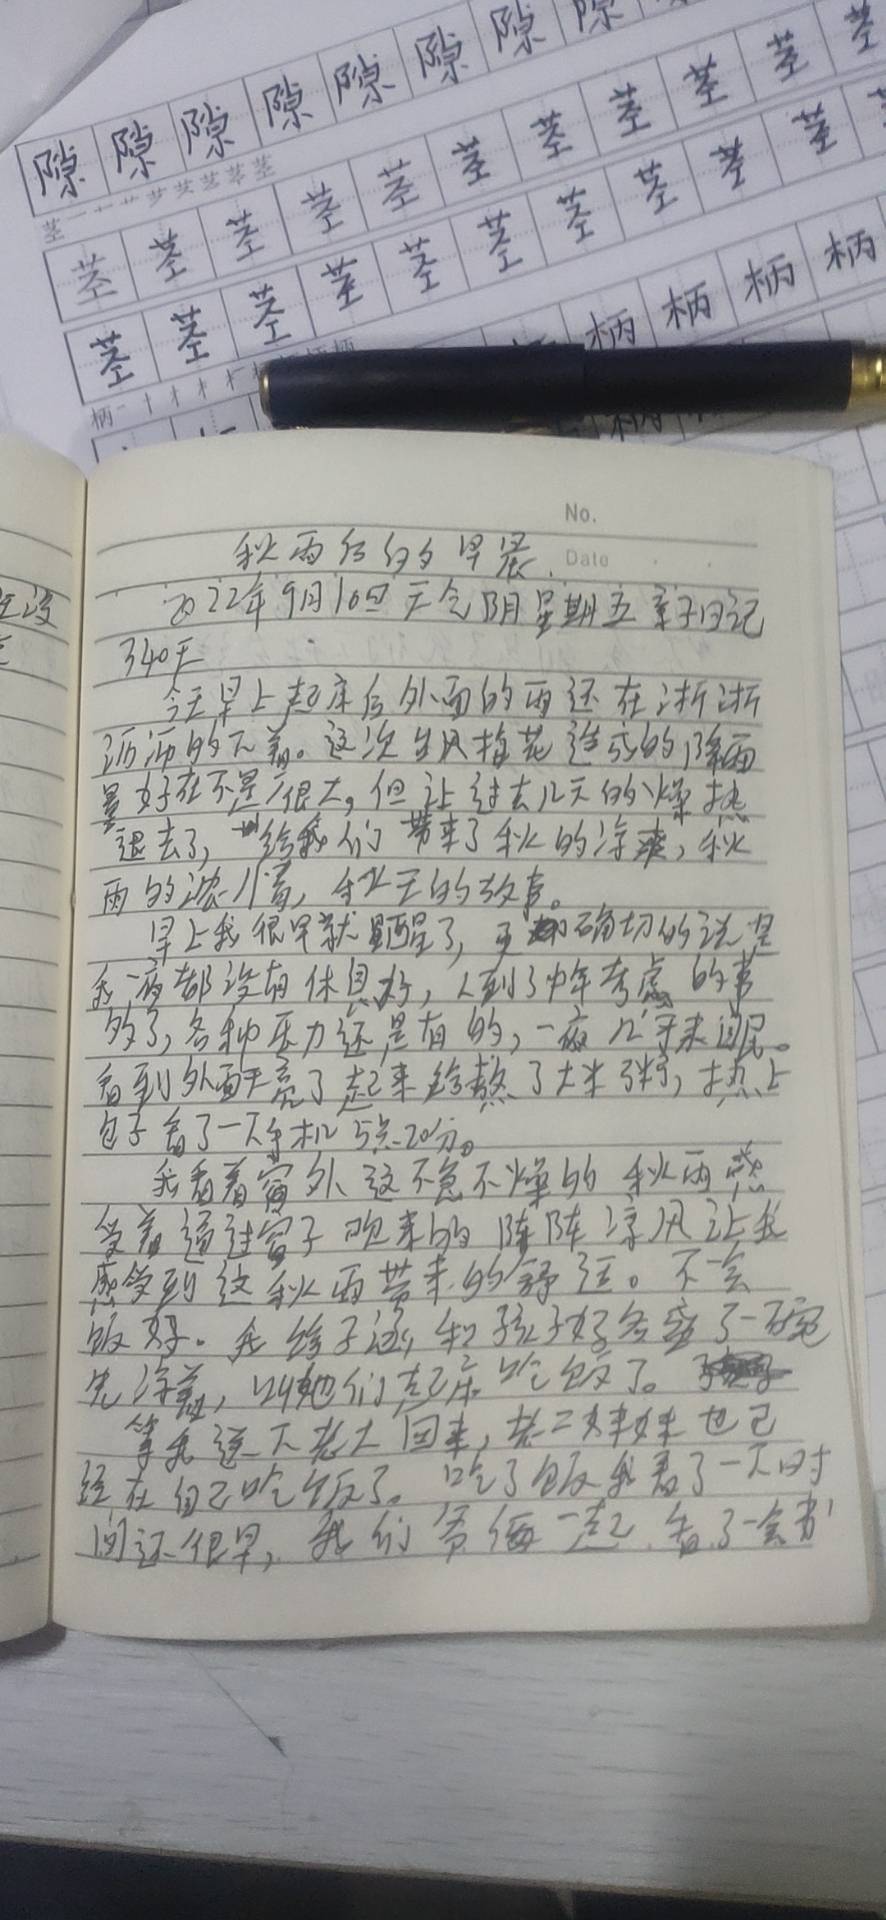 隙 隙 隙 隙 隙 隙 隙 隙
茎 茎 茎 茎 茎 茎 茎 茎 茎 茎 茎
茎 茎 茎 茎 茎 茎 茎 茎 茎 茎
柄 柄 柄 柄
No.
Date
秋雨后的早晨.
2022年9月10日 天气阴 星期五 亲子日记
340天
今天早上起床后外面的雨还在淅淅
沥沥的下着。这次台风梅花造成的降雨
量好在不是很大,但让过去几天的燥热
退去了,给我们带来了秋的凉爽,秋
雨的浓着,秋天的故事。
早上我很早就醒了,更确切的说是
我一夜都没有休息好,人到了中年考虑的事
多了,各种压力还是有的,一夜几乎未眠。
看到外面天亮了起来给熬了大米粥,热上
包子看了一下手机5点20分。
我看着窗外这不急不燥的秋雨感
受着通过窗子吹来的阵阵凉风让我
感受到这秋雨带来的舒适。不一会
饭好。我给子涵和孩子妈各盛了一碗
先凉着,叫她们起床吃饭了。
等我送下老大回来,老二妹妹也已
经在自己吃饭了。吃了饭我看了一下时
间还很早,我们爷俩一起看了一会书